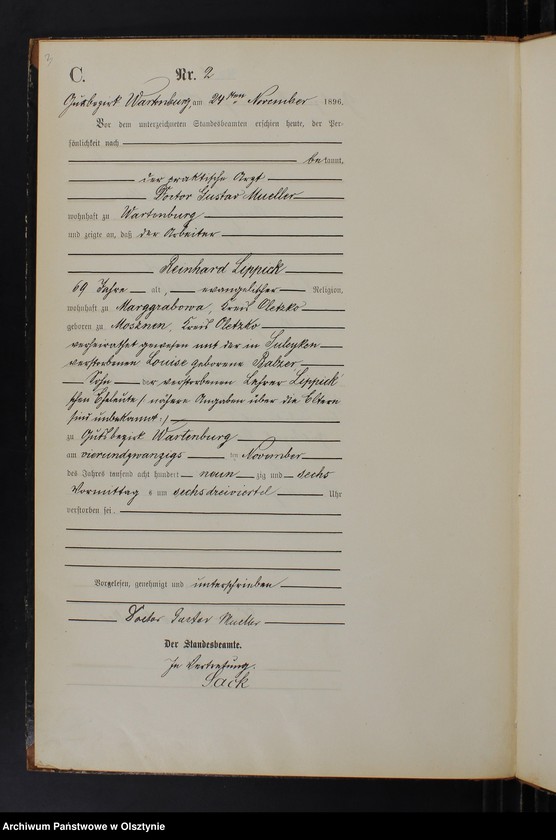 C. Nr. 2
Gutsbezirk Wartenburg, am 24ten November 1896.
Vor dem unterzeichneten Standesbeamten erschien heute, der Per-
sönlichkeit nach
bekannt,
der praktische Arzt
Doctor Gustav Mueller
wohnhaft zu Wartenburg
und zeigte an, daß der Arbeiter
Reinhard Leppick
69 Jahre alt, evangelischer Religion,
wohnhaft zu Marggrabowa, Kreis Oletzko
geboren zu Mosznen, Kreis Oletzko
verheirathet gewesen mit der in Suleyken
verstorbenen Louise geborene Balzer
Sohn der verstorbenen Lehrer Leppick
schen Eheleute /: nähere Angaben über die Eltern
sind unbekannt :/
zu Gutsbezirk Wartenburg
am vierundzwanzigs November
des Jahres tausend acht hundert neun zig und sechs
Vormittags um sechsdreiviertel Uhr
verstorben sei.
Vorgelesen, genehmigt und unterschrieben
Doctor Gustav Mueller
Der Standesbeamte.
In Vertretung.
Sack
Archiwum Państwowe w Olsztynie